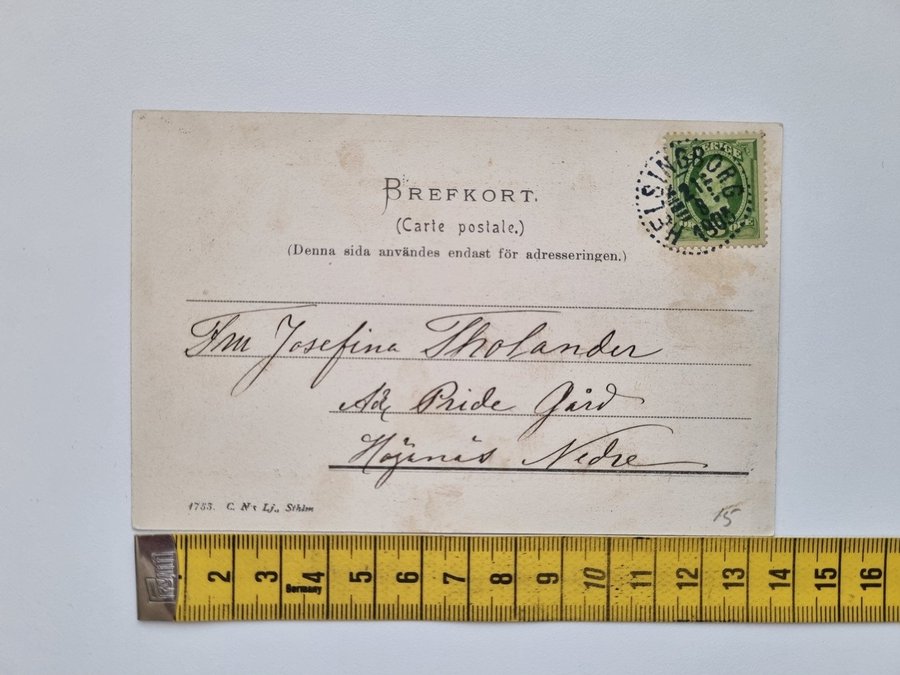 BREFKORT.
(Carte postale.)
(Denna sida användes endast för adresseringen.)
SVERIGE
HELSINGBORG
1905
Fru Josefina Tholander
Adr Pride Gård
Höganäs Nedre
1753. C. N:s Lj., Sthlm
15
2 3 4 5 6 7 8 9 10 11 12 13 14 15 16
Germany